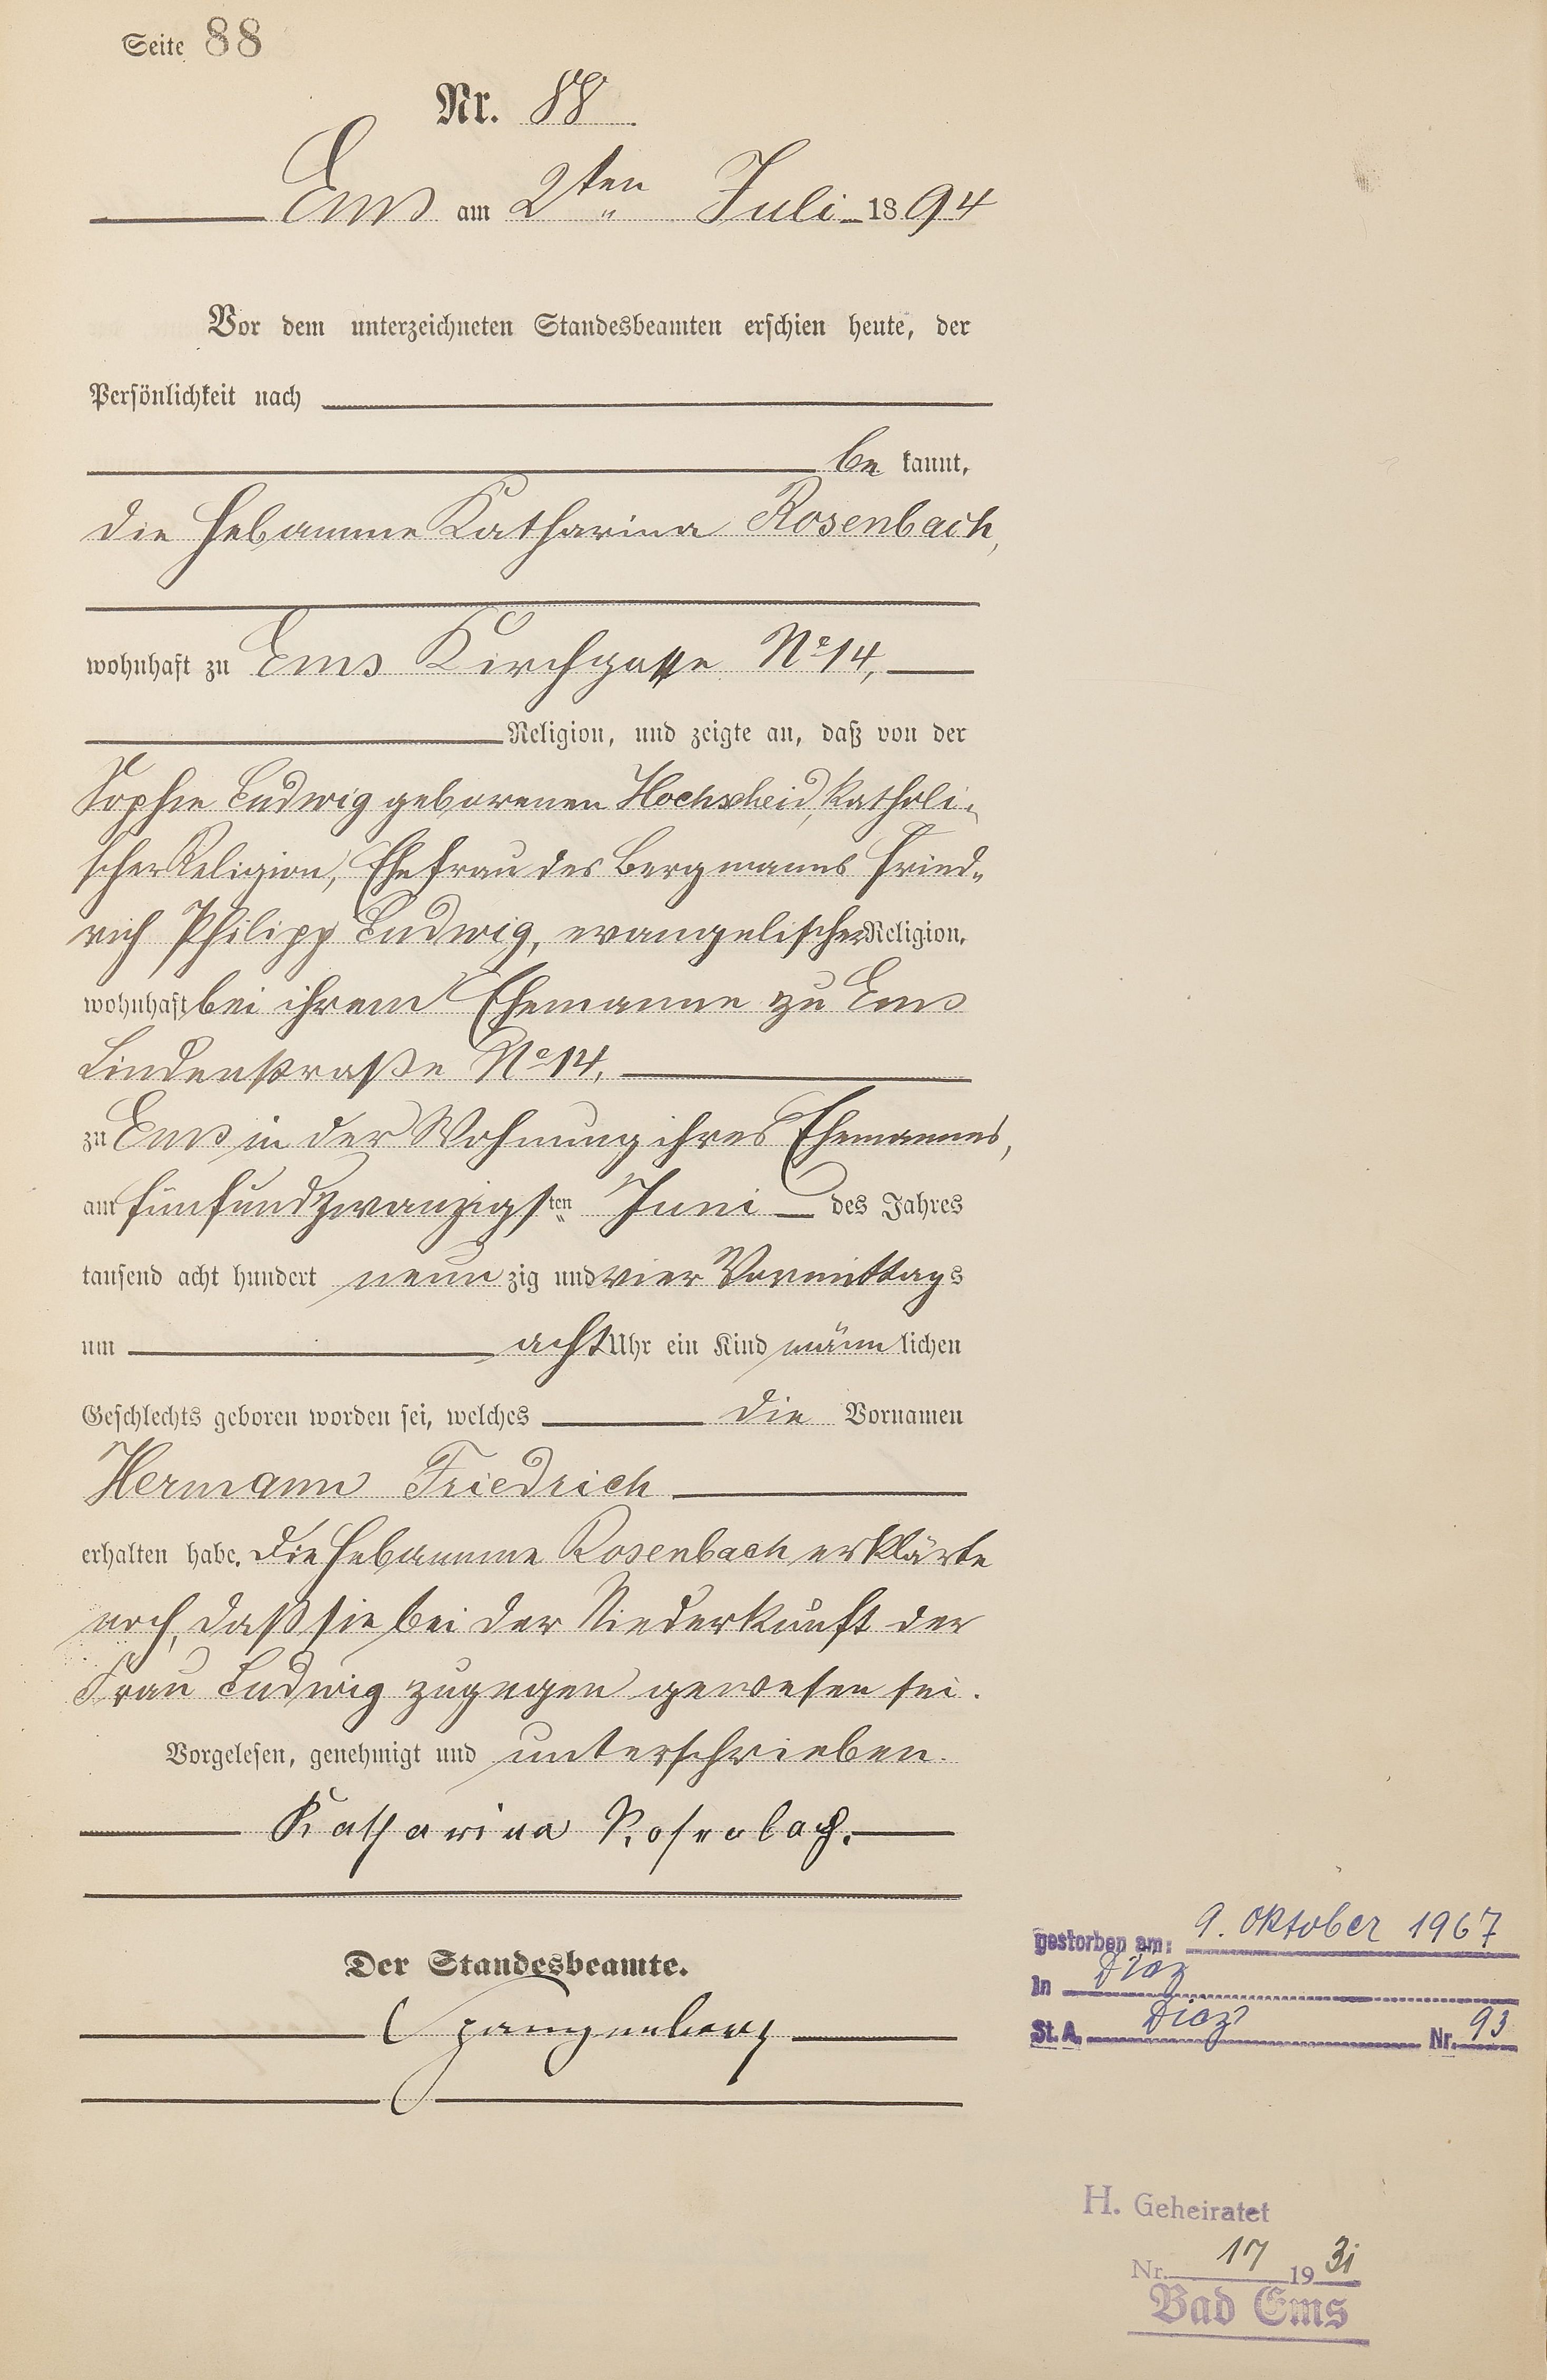 Seite 88
Nr. 88
Ems am 2ten Juli 1894
Vor dem unterzeichneten Standesbeamten erschien heute, der
Persönlichkeit nach
be kannt,
die Hebamme Katharina Rosenbach,
wohnhaft zu Ems Kirchgasse No 14,
Religion, und zeigte an, daß von der
Sophie Ludwig geborenen Hochscheid, katholi-
scher Religion, Ehefrau des Bergmanns Fried-
rich Philipp Ludwig, evangelischer Religion,
wohnhaft bei ihrem Ehemanne zu Ems
Lindenstraße No 14,
zu Ems in der Wohnung ihres Ehemannes,
am fünfundzwanzigsten Juni des Jahres
tausend acht hundert neun zig und vier Vormittags
um acht Uhr ein Kind männ lichen
Geschlechts geboren worden sei, welches die Vornamen
Hermann Friedrich
erhalten habe. Die Hebamme Rosenbach erklärte
noch, daß sie bei der Niederkunft der
Frau Ludwig zugegen gewesen sei.
Vorgelesen, genehmigt und unterschrieben.
Katharina Rosenbach.
Der Standesbeamte.
Spangenberg
gestorben am: 9. Oktober 1967
in Diez
St. A. Diez Nr. 93
H. Geheiratet
Nr. 17 19 31
Bad Ems